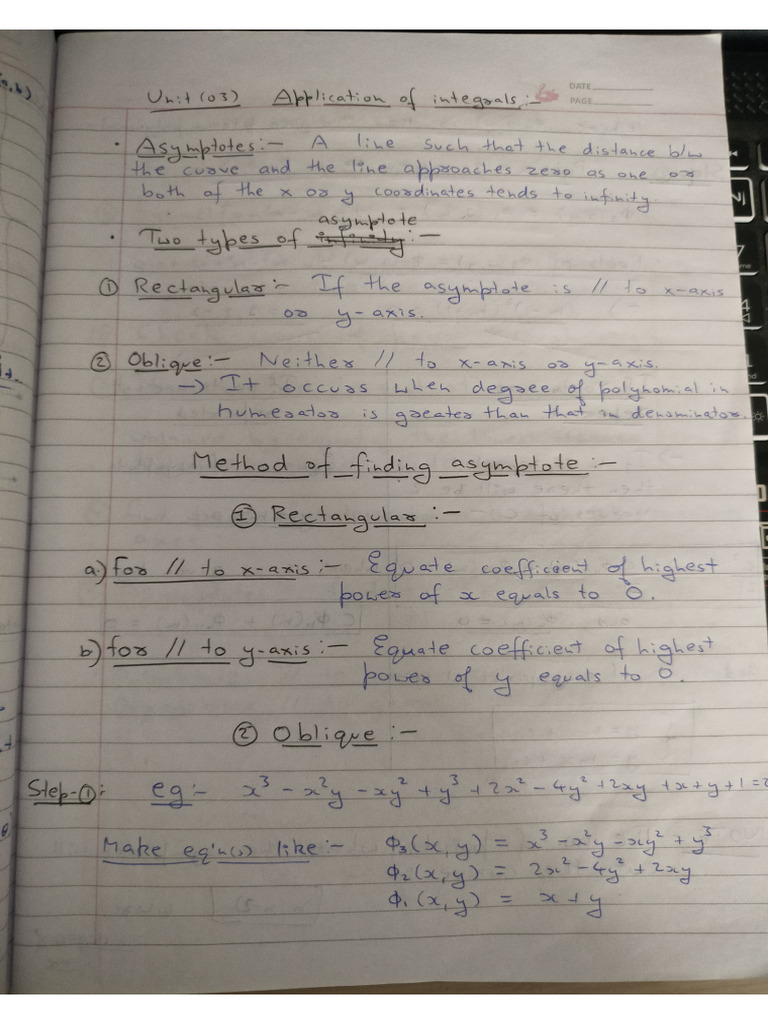 DATE
PAGE
Unit (03) Application of integrals :-
• Asymptotes :- A line such that the distance b/w
the curve and the line approaches zero as one or
both of the x or y coordinates tends to infinity.
asymptote
• Two types of infinity :-
① Rectangular :- If the asymptote is // to x-axis
or y-axis.
② Oblique :- Neither // to x-axis or y-axis.
→ It occurs when degree of polynomial in
numerator is greater than that in denominator.
Method of finding asymptote :-
① Rectangular :-
a) for // to x-axis :- Equate coefficient of highest
power of x equals to 0.
b) for // to y-axis :- Equate coefficient of highest
power of y equals to 0.
② Oblique :-
Step-①: eg :- x³ - x²y - xy² + y³ + 2x² - 4y² + 2xy + x + y + 1 =
Make eq'n(s) like :- Φ₃(x, y) = x³ - x²y - xy² + y³
Φ₂(x, y) = 2x² - 4y² + 2xy
Φ₁(x, y) = x + y